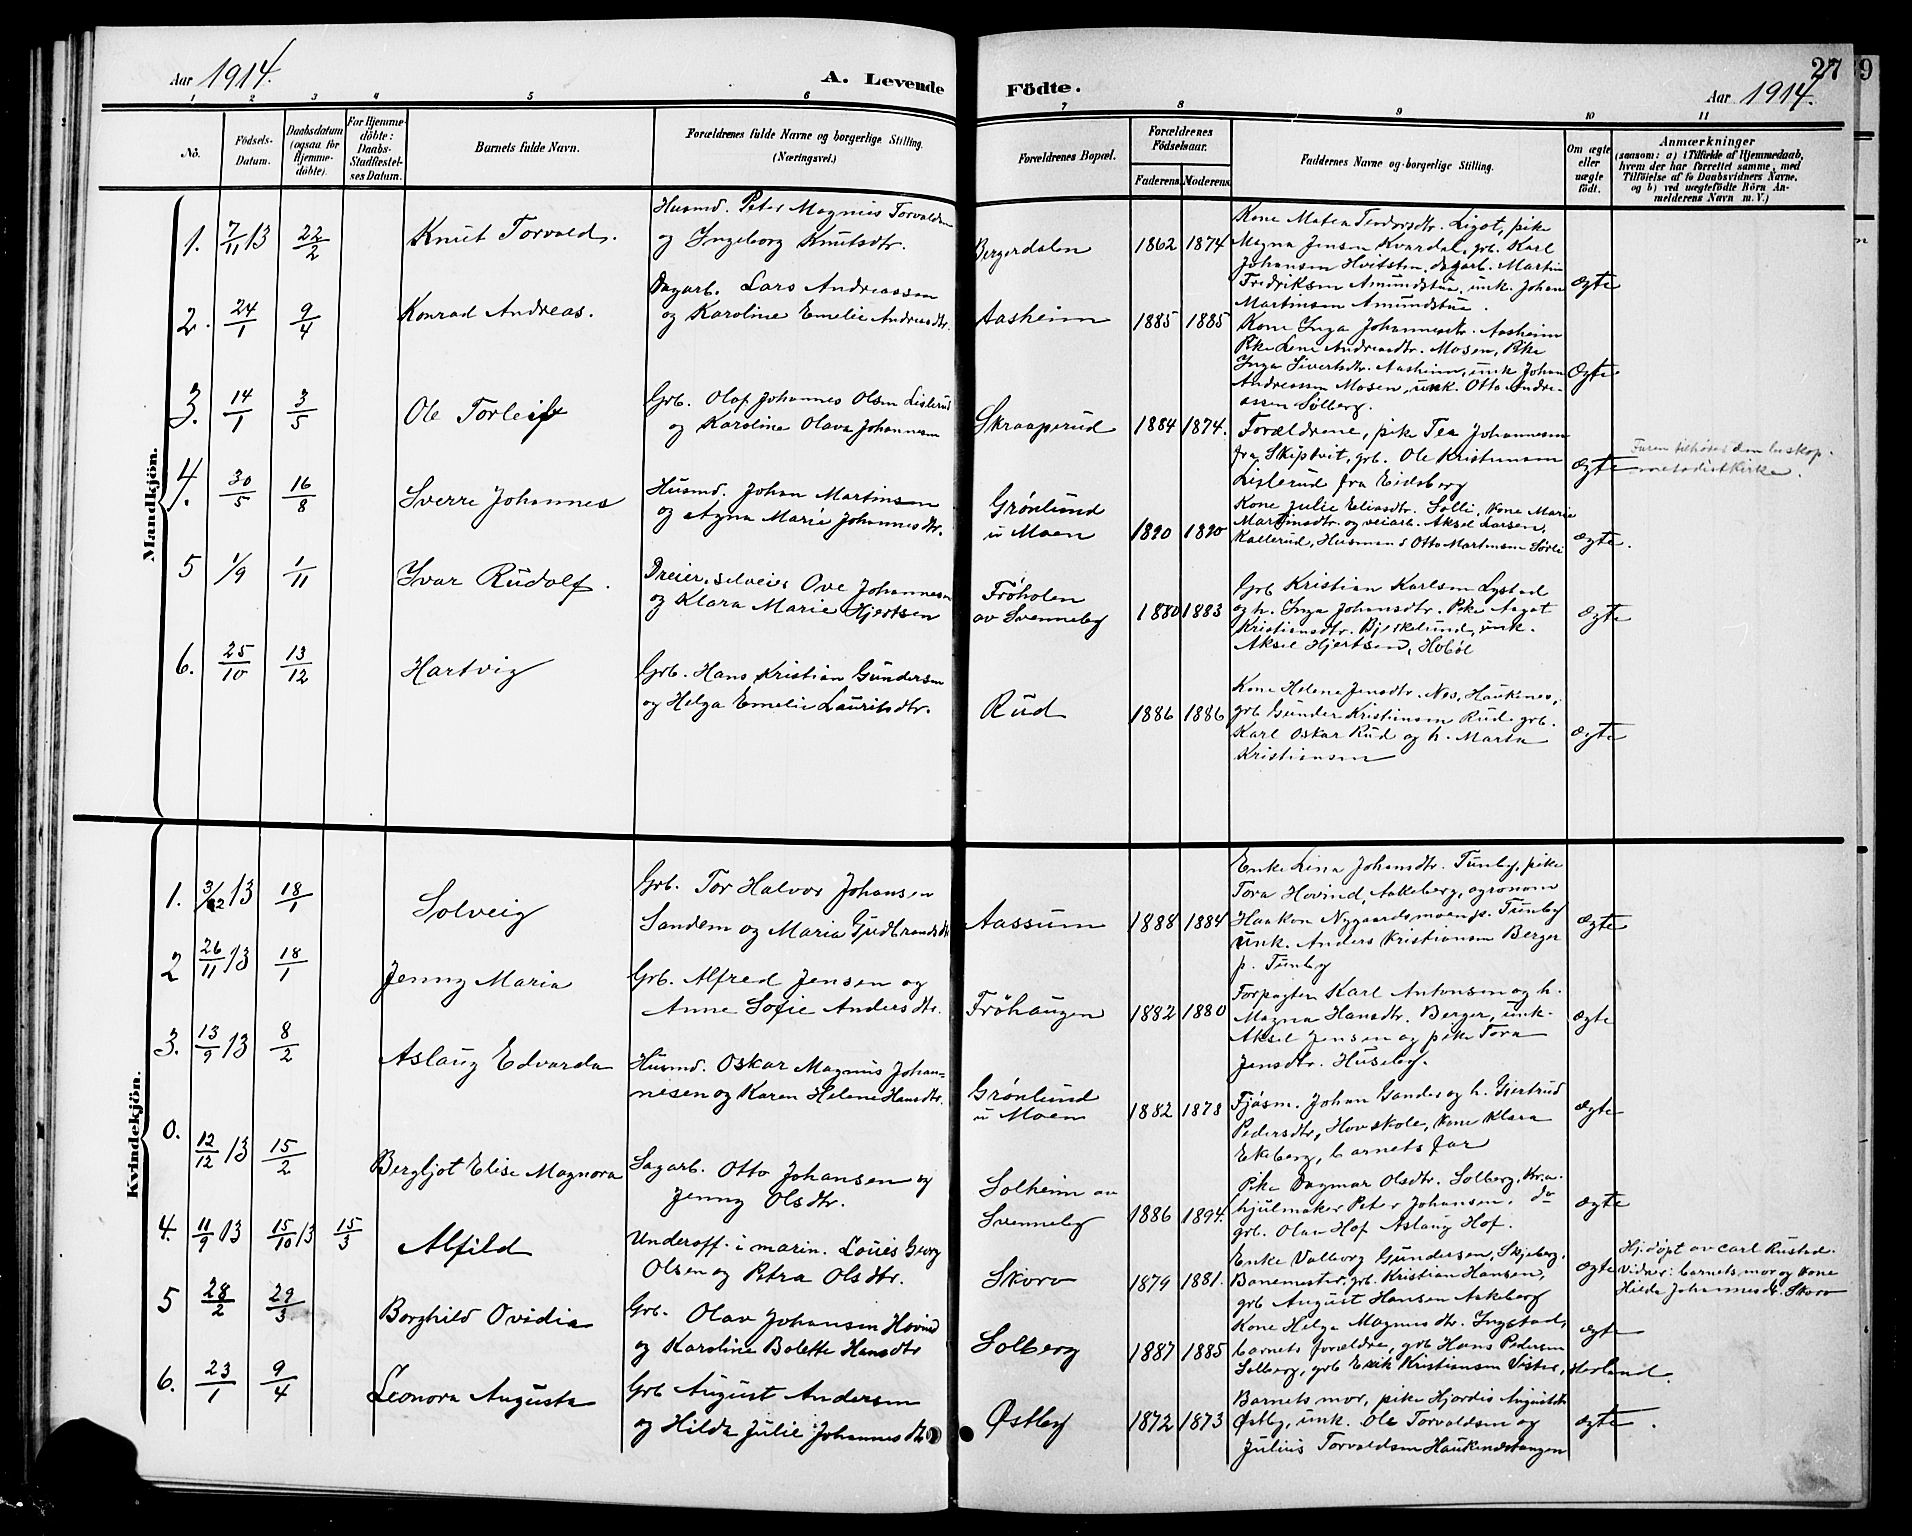 Aar 1914.
A. Levende
Födte.
Aar 1914.
27
9
1 2 3 4 5 6 7 8 9 10 11
No.
Födsels-
Datum.
Daabsdatum
(ogsaa for
Hjemme-
döbte).
For Hjemme-
döbte:
Daabs-
Stadfæstel-
ses Datum.
Barnets fulde Navn.
Forældrenes fulde Navne og borgerlige Stilling.
(Næringsvei.)
Forældrenes Bopæl.
Forældrenes
Födselsaar.
Faderens.
Moderens.
Faddernes Navne og borgerlige Stilling.
Om ægte
eller
uægte
födt.
Anmærkninger
(saasom: a) i Tilfælde af Hjemmedaab,
hvem der har forrettet samme, med
Tilföielse af to Daabsvidners Navne.
og b) ved uægtefödte Börn An-
melderens Navn m. V.)
Mandkjön.
1. 7/11 13 22/2 Knut Torvald.
Husmd. Peter Magnus Torvaldsen
og Ingeborg Knutsdtr.
Bergerdalen 1862 1874
Kone Matea Teodorsdtr. Ligot, pike
Magna Jensen Kvardal, grb. Karl
Johansen Hvitsten, dagarb. Martin
Fredriksen Amundstua, unk. Johan
Martinsen Amundstue.
ægte
2. 24/1 9/4 Konrad Andreas.
Dagarb. Lars Andreassen
og Karoline Emelie Andreasdtr.
Aasheim 1885 1885
Kone Inga Johannesdtr. Aasheim
Pike Lene Andreasdtr. Mosen, Pike
Inga Sivertsdtr. Aasheim, unk Johan
Andreassen Mosen, unk. Otto Andre-
assen Sølberg.
ægte
3. 14/1 3/5 Ole Torleif
Grb. Olaf Johannes Olsen Lislerud
og Karoline Olava Johannesen
Skraaperud 1884 1874.
Forældrene, pike Tea Johannesen
fra Skiptvit, grb. Ole Kristiansen
Lislerud fra Eidsberg
ægte
Faren tilhører den biskop.
metodistkirke.
4. 30/5 16/8 Sverre Johannes
Husmd. Johan Martinsen
og Agna Marie Johannesdtr.
Grønlund
u Moen 1890 1890
Kone Julie Eliasdtr. Solli, Kone Marie
Martinsdtr. og veiarb. Aksel Larsen,
Kallerud, Husmand Otto Martinsen Sørli
ægte.
5 1/9 1/11 Ivar Rudolf.
Dreier, selveier Ove Johannesen
og Klara Marie Hjertsen
Frøholen
av Svenneby 1880 1883
Grb Kristian Karlsen Lystad
og h. Inga Johansdtr. Pike Aagot
Kristiansdtr. Bjerkelund, unk.
Aksel Hjertsen, Hobøl
ægte
6. 25/10 13/12 Hartvig
Grb. Hans Kristian Gundersen
og Helga Emelie Lauritsdtr.
Rud 1886 1886
Kone Helene Jensdtr. Nes, Haukenes,
grb Gunder Kristiansen Rud, grb.
Karl Oskar Rud og h. Marta
Kristiansen
ægte
Kvindekjön.
1. 3/12 13 18/1 Solveig
Grb. Tor Halvor Johansen
Sandem og Maria Gudbrandsdtr
Aassum 1888 1884
Enke Lina Johansdtr. Tunby, pike
Tora Hovind, Askeberg, agronom
Haakon Nygaardsmoen p. Tunby
unk. Anders Kristiansen Berger
p. Tunby
ægte
2 26/11 13 18/1 Jenny Maria
Grb. Alfred Jensen og
Anne Sofie Andersdtr.
Frøhaugen 1882 1880
Forpagter Karl Antonsen og h.
Magna Hansdtr. Berger, unk.
Aksel Jensen og pike Tora
Jensdtr. Huseby.
ægte
3. 13/9 13 8/2 Aslaug Edvarda
Husmd. Oskar Magnus Johan-
nesen og Karen Helene Hansdtr.
Grønlund
u Moen 1882 1878
Fjøsm. Johan Gander og h. Gjertrud
Pedersdtr, Hovskole, Kone Klara
Ekeberg, barnets far
ægte
0. 12/12 13 15/2 Bergljot Elise Magnora
Sagarb. Otto Johansen og
Jenny Olsdtr.
Solheim av
Svenneby 1886 1894.
Pike Dagmar Olsdtr. Solberg, Kr.a.
hjulmaker Peter Johansen, do
grb. Olav Hof Aslaug Hof.
ægte
4. 11/9 13 15/10 13 15/3 Alfild
Underoff. i marin. Louis Georg
Olsen og Petra Olsdtr.
Skoro 1879 1881.
Enke Valborg Gundersen, Skjeberg.
Banemester, grb. Kristian Hansen,
grb August Hansen Askeberg
ægte
Hj.døpt av Carl Rustad.
Vidner: barnets mor og kone
Hilda Johannesdtr. Skoro
5 28/2 29/3 Borghild Ovidia
Grb. Olav Johansen Hovind
og Karoline Bolette Hansdtr
Solberg 1887 1885
Kone Helga Magnusdtr. Ingstad,
barnets forældre, grb Hans Pedersen
Solberg, grb Erik Kristiansen Vister, Herland.
ægte
6. 23/1 9/4 Leonora Augusta
Grb August Andersen
og Hilda Julie Johannesdtr
Østby 1872 1873
Barnets mor, pike Hjordis Augustdtr
Østby, unk. Ole Torvaldsen og
Julius Torvaldsen Haukenestangen
ægte.